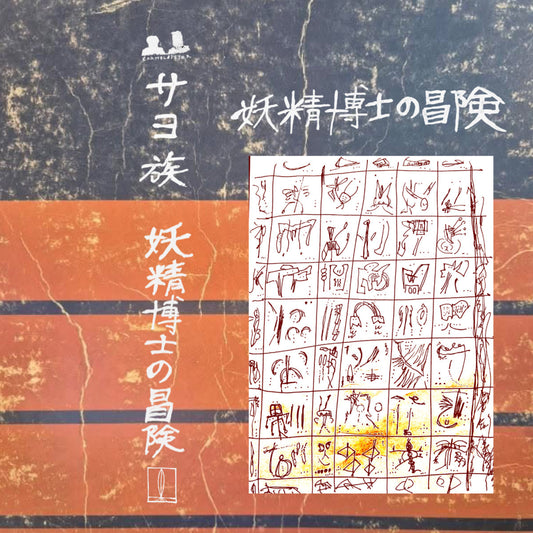 サヨ族
妖精博士の冒険
妖精博士の冒険